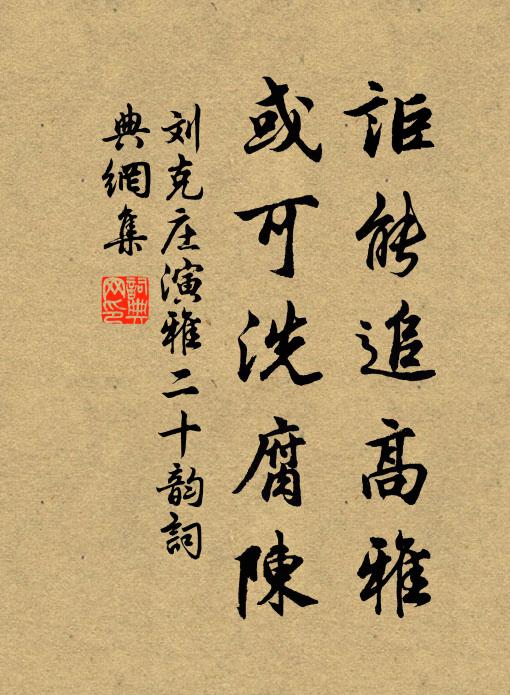 詎能追高雅
或可洗腐陳
刘克庄演雅二十韵詞
典網集
詞典網印